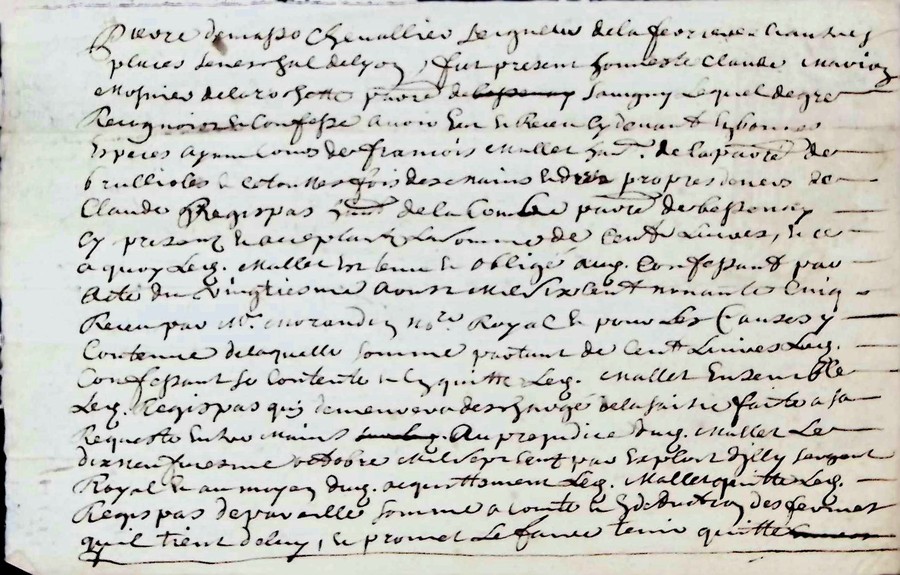 Pierre de masso Chevallier seigneur de la ferriere & autres
places seneschal de lyon, fut present honneste Claude
Mosnier de la rochette parre de Savigny Lequel de gre
Recognoist & Confesse avoir Eu & Receu Cy devant En bonnes
Especes ayant Cours de francois Mallet hant. de la parre de
brullioles & ce touttes fois des mains & des propres deniers de
Claude Regispas hant de la Combe parre de bessenay
Cy present & acceptant La somme de Cent Livres, & ce
a quoy Led. Mallet Est tenu & obligé aud. Confessant par
acte du vingtiesme aoust Mil six Cent nonante Cinq
Receu par Mr. Morandin nore. Royal & pour Les Causes y
Contenue de laquelle somme partant de Cent Livres Led.
Confessant se Contente & En quitte Led. Mallet Ensemble
Led. Regispas qui demeurera deschargé de la saisie faite a sa
Requeste Entre Mains au prejudice dud. Mallet Le
dix neufviesme octobre Mil sept Cent par Exploit sergent
Royal & au moyen dud. acquittement Led. Mallet quitte Led.
Regispas de pareille somme a Comte & En deduction des fermes
qu'il tient de luy, & promet Le faire tenir quitte